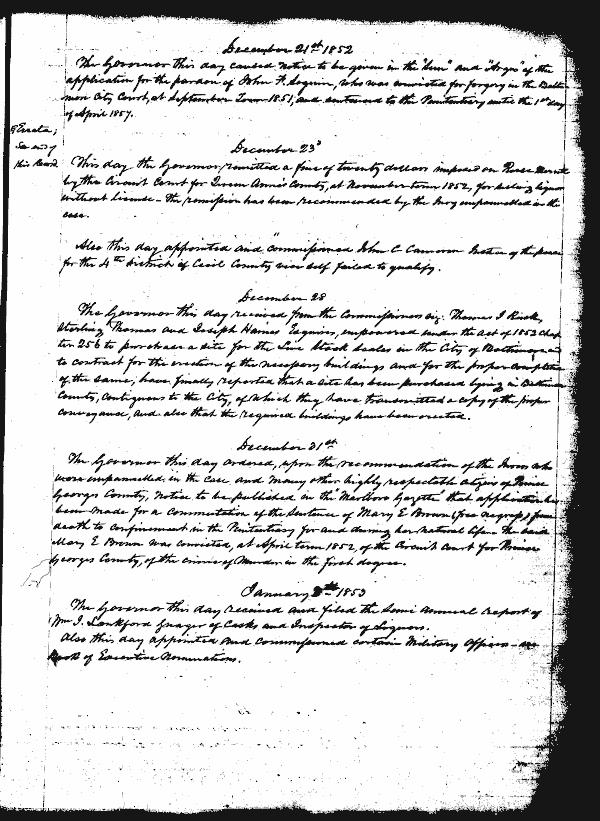 December 21st 1852
The Governor this day caused notice to be given in the "Sun" and "Argus" of the
application for the pardon of John F. who was convicted for forgery in the Balti
more City Court, at September Term 1851, and sentenced to the Penitentiary until the 1st day
of April 1857.
Errata;
See end of
this Record
December 23d
This day the Governor remitted a fine of twenty dollars imposed on
by the Circuit Court for Queen Anne's County, at November term 1852, for selling liquor
without license - the remission has been recommended by the Jury empannelled in the
case.
Also this day appointed and commissioned John C Cameron Justice of the peace
for the 4th district of Cecil County vice self failed to qualify.
December 28
The Governor this day received from the Commissioners viz: Thomas I
Sterling Thomas and Joseph Haines Esquires, empowered under the act of 1852 chap
ter 256 to purchase a site for the Live Stock Scales in the City of Baltimore and
to contract for the erection of the necessary buildings and for the proper completion
of the same; have finally reported that a site has been purchased lying in Baltimore
County, contiguous to the City, of which they have transmitted a copy of the proper
conveyance, and also that the required buildings have been erected.
December 31st
The Governor this day ordered, upon the recommendation of the Jurors who
were empannelled in the case and many other highly respectable citizens of Prince
Georges County, notice to be published in the "Marlboro Gazette" that application has
been made for a commutation of the sentence of Mary E Brown (free negro,) from
death to confinement in the Penitentiary for and during her natural life - the said
Mary E Brown was convicted, at April term 1852, of the Circuit Court for Prince
Georges County, of the crime of Murder in the first degree.
January 1853
The Governor this day received and filed the Semi annual report of
Wm J. Lankford Guager of Casks and Inspector of Liquors.
Also this day appointed and commissioned certain Military Officers - see
Book of Executive Nominations.